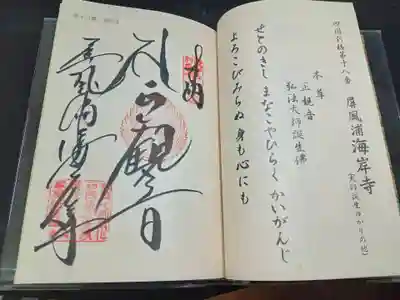 四国別格第十八番
屏風浦海岸寺
本尊
正観音
弘法大師誕生佛
せとのきし まなこやひらく かいがんじ
よろこびみちぬ 身も心にも
奉納
正観音
屏風浦海岸寺